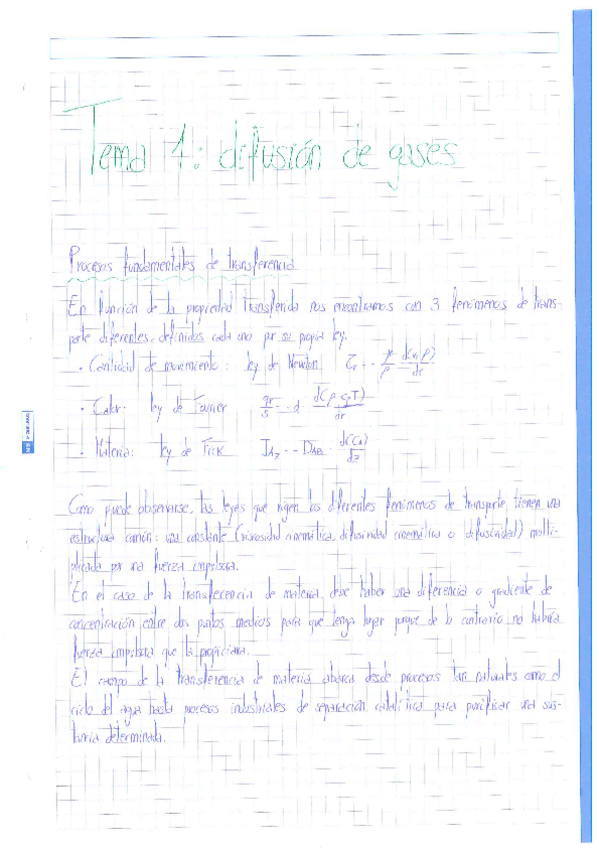 Tema 1: difusión de gases
Procesos fundamentales de transferencia
En función de la propiedad transferida nos encontramos con 3 fenómenos de trans-
porte diferentes, definidos cada uno por su propia ley.
· Cantidad de movimiento: ley de Newton
· Calor: ley de Fourier
· Materia: ley de Fick J_Az = - D_AB · d(C_A)/dz
Como puede observarse, las leyes que rigen los diferentes fenómenos de transporte tienen una
estructura común: una constante (viscosidad cinemática, difusividad cinemática o difusividad) multi-
plicada por una fuerza impulsora.
En el caso de la transferencia de materia, debe haber una diferencia o gradiente de
concentración entre dos puntos medios para que tenga lugar porque de lo contrario no habría
fuerza impulsora que la propiciara.
El campo de la transferencia de materia abarca desde procesos tan naturales como el
ciclo del agua hasta procesos industriales de separación catalítica para purificar una sus-
tancia determinada.